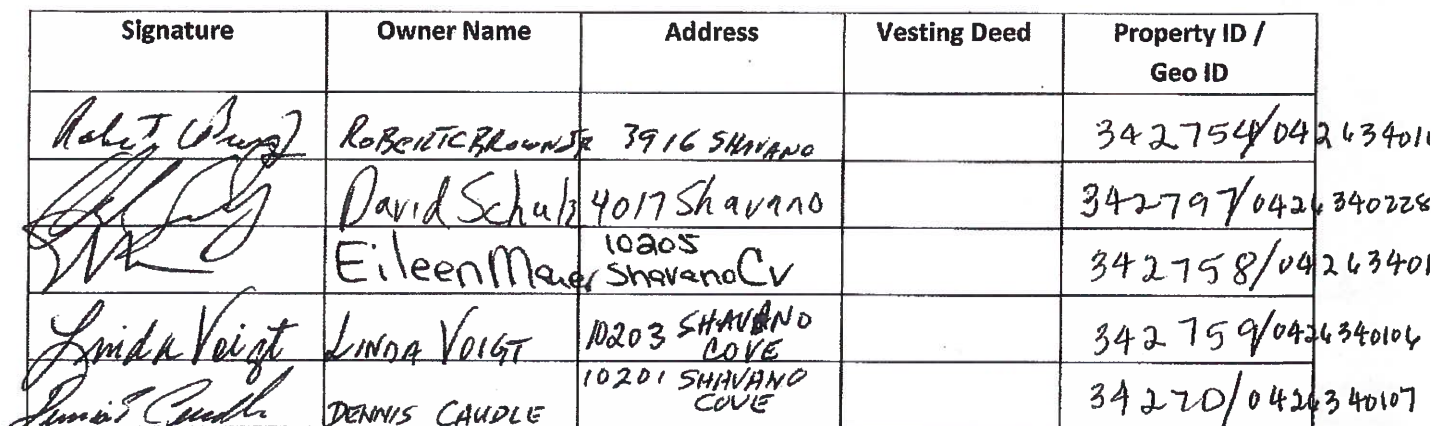 Signature Owner Name Address Vesting Deed Property ID /
Geo ID
ROBERT C BROWN JR 3916 SHAVANO 342754/042634011
David Schulz 4017 Shavano 342797/0426340228
Eileen 10205
Shavano Cv 342758/04263401
Linda Voigt LINDA VOIGT 10203 SHAVANO
COVE 342759/0426340106
Dennis Caudle DENNIS CAUDLE 10201 SHAVANO
COVE 34270/0426340107